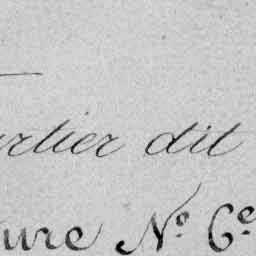 rtier dit
ure N.º C.e